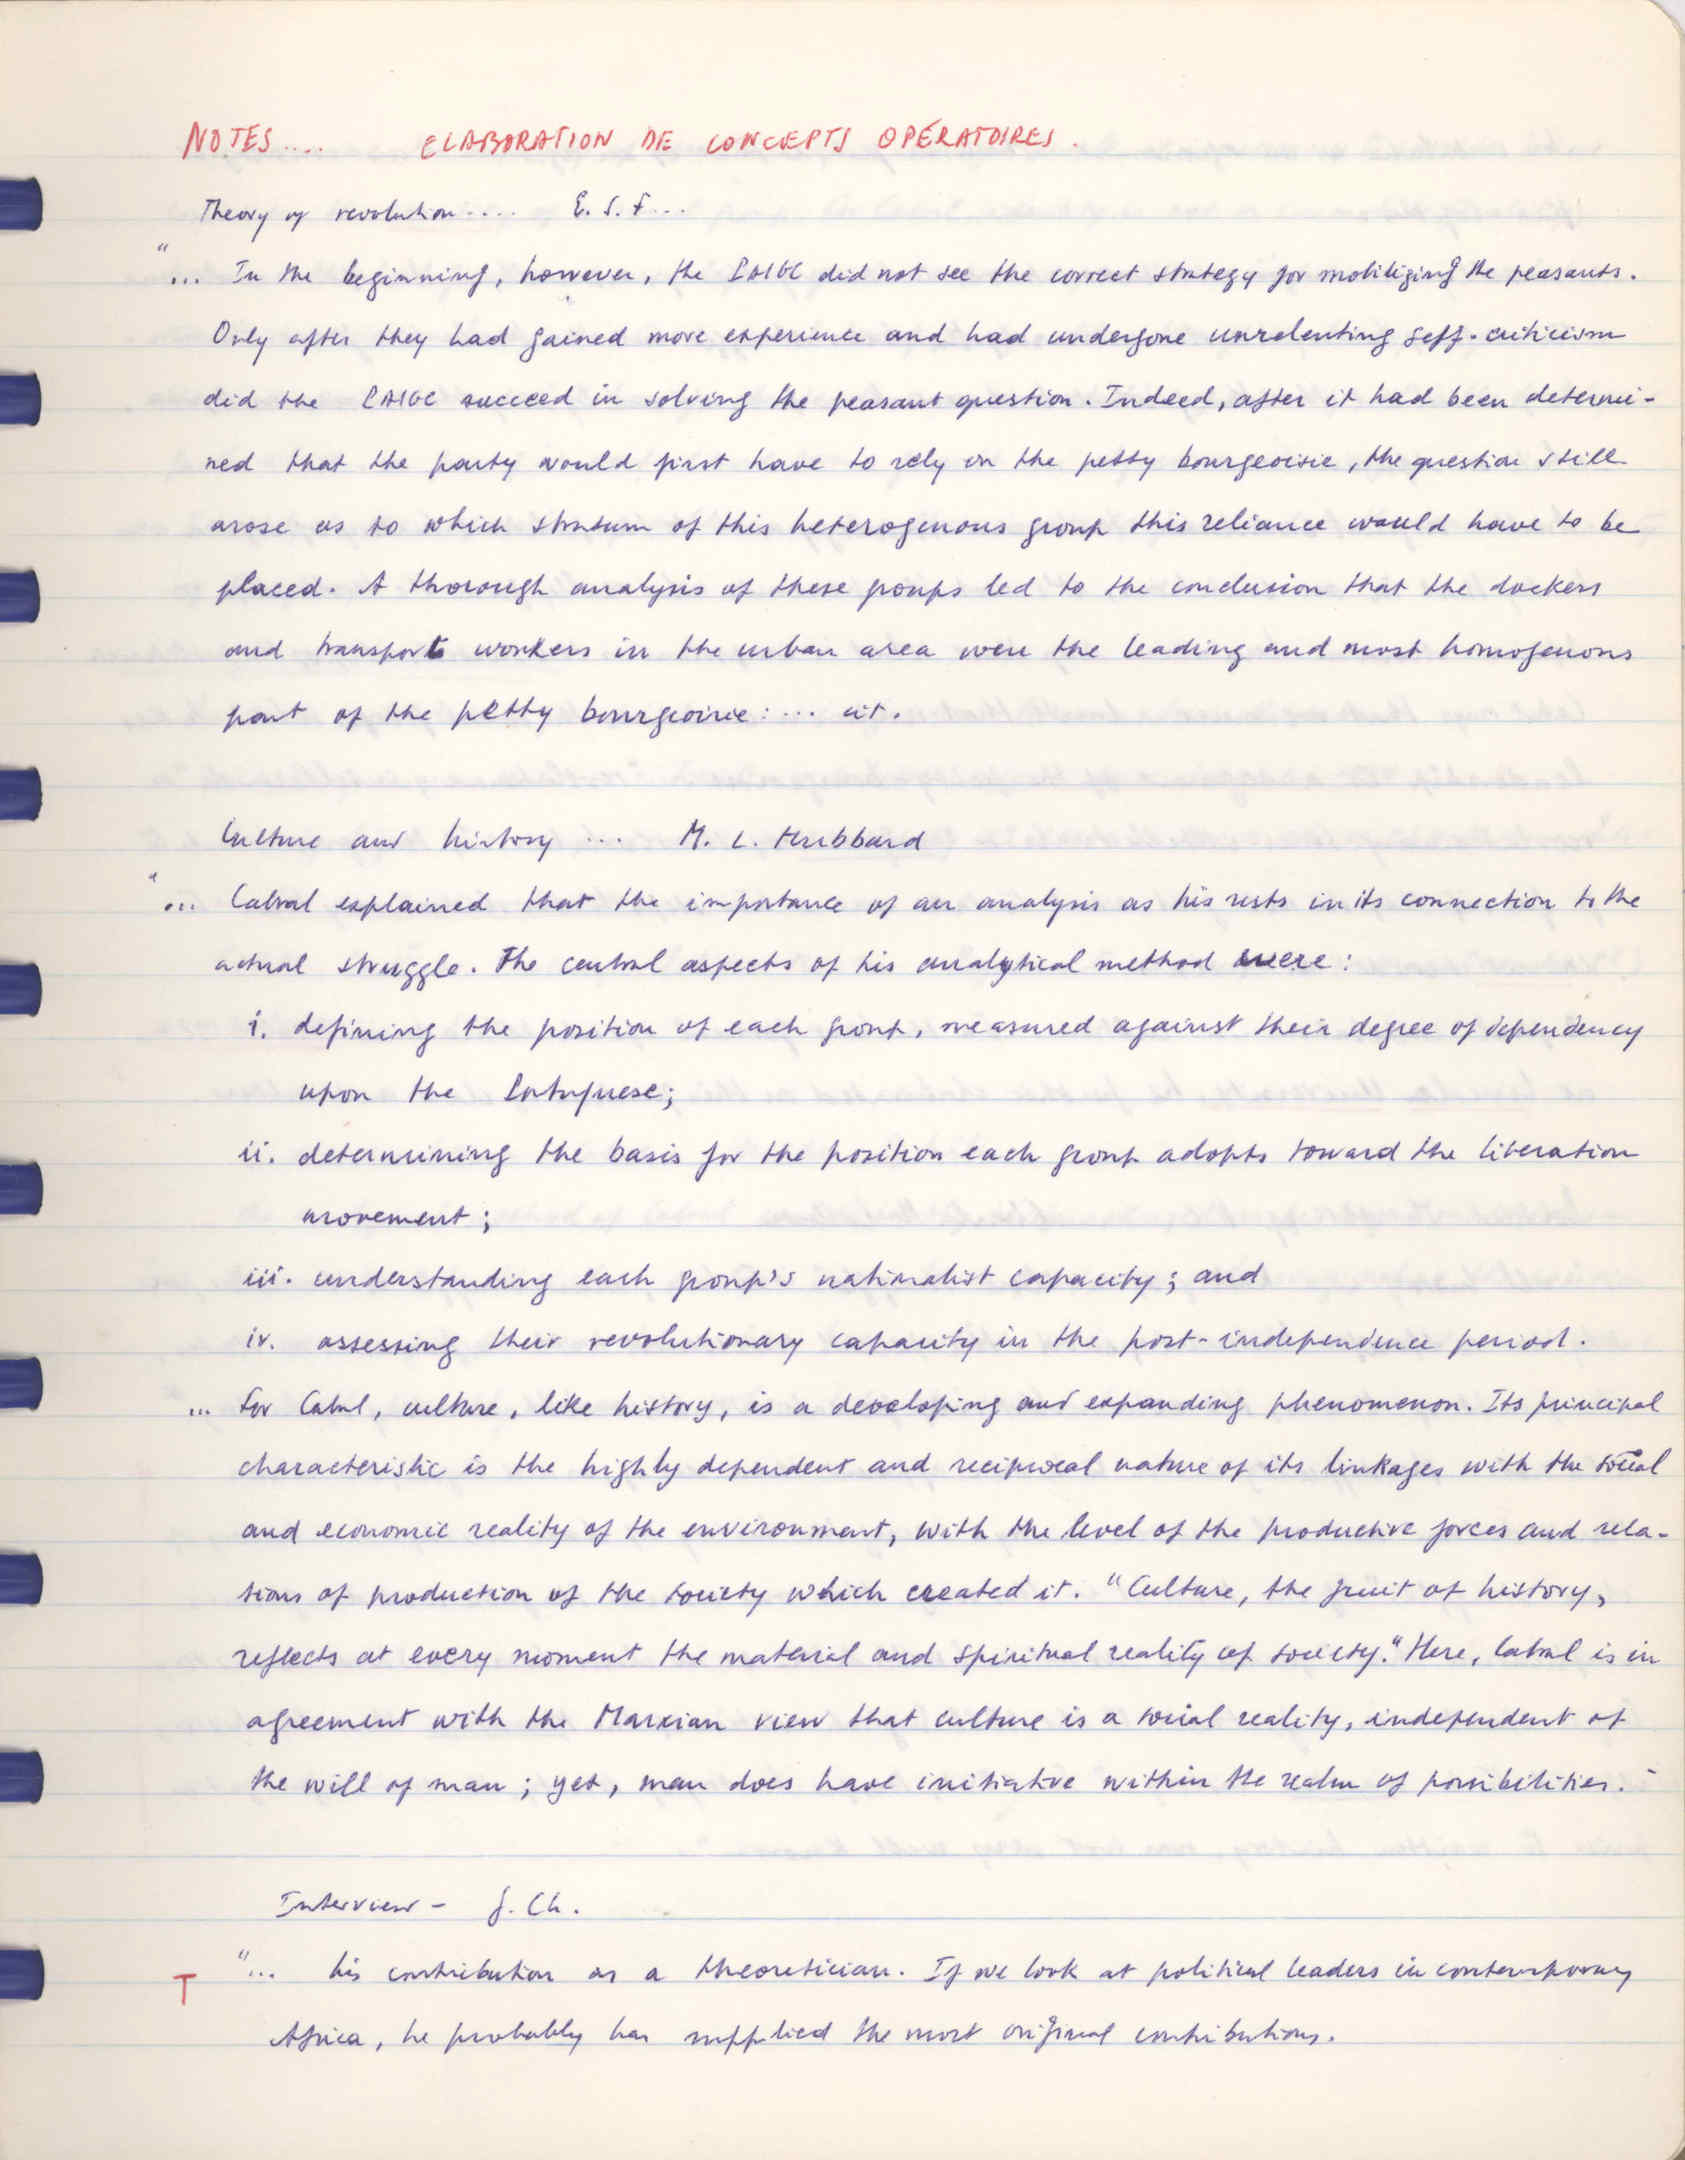 NOTES .... ELABORATION DE CONCEPTS OPÉRATOIRES.
Theory of revolution.... E. S. F...
"... In the beginning, however, the PAIGC did not see the correct strategy for mobilizing the peasants.
Only after they had gained more experience and had undergone unrelenting self-criticism
did the PAIGC succeed in solving the peasant question. Indeed, after it had been determi-
ned that the party would first have to rely on the petty bourgeoisie, the question still
arose as to which stratum of this heterogenous group this reliance would have to be
placed. A thorough analysis of these groups led to the conclusion that the dockers
and transport workers in the urban area were the leading and most homogenous
part of the petty bourgeoisie: ... cit.
Culture and history ... M. L. Hubbard
"... Cabral explained that the importance of an analysis as his rests in its connection to the
actual struggle. The central aspects of his analytical method were:
i. defining the position of each group, measured against their degree of dependency
upon the Portuguese;
ii. determining the basis for the position each group adopts toward the liberation
movement;
iii. understanding each group's nationalist capacity; and
iv. assessing their revolutionary capacity in the post-independence period.
... For Cabral, culture, like history, is a developing and expanding phenomenon. Its principal
characteristic is the highly dependent and reciprocal nature of its linkages with the social
and economic reality of the environment, with the level of the productive forces and rela-
tions of production of the society which created it. "Culture, the fruit of history,
reflects at every moment the material and spiritual reality of society." Here, Cabral is in
agreement with the Marxian view that culture is a social reality, independent of
the will of man; yet, man does have initiative within the realm of possibilities.
Interview - G. Ch.
T "... his contribution as a theoretician. If we look at political leaders in contemporary
Africa, he probably has supplied the most original contributions.